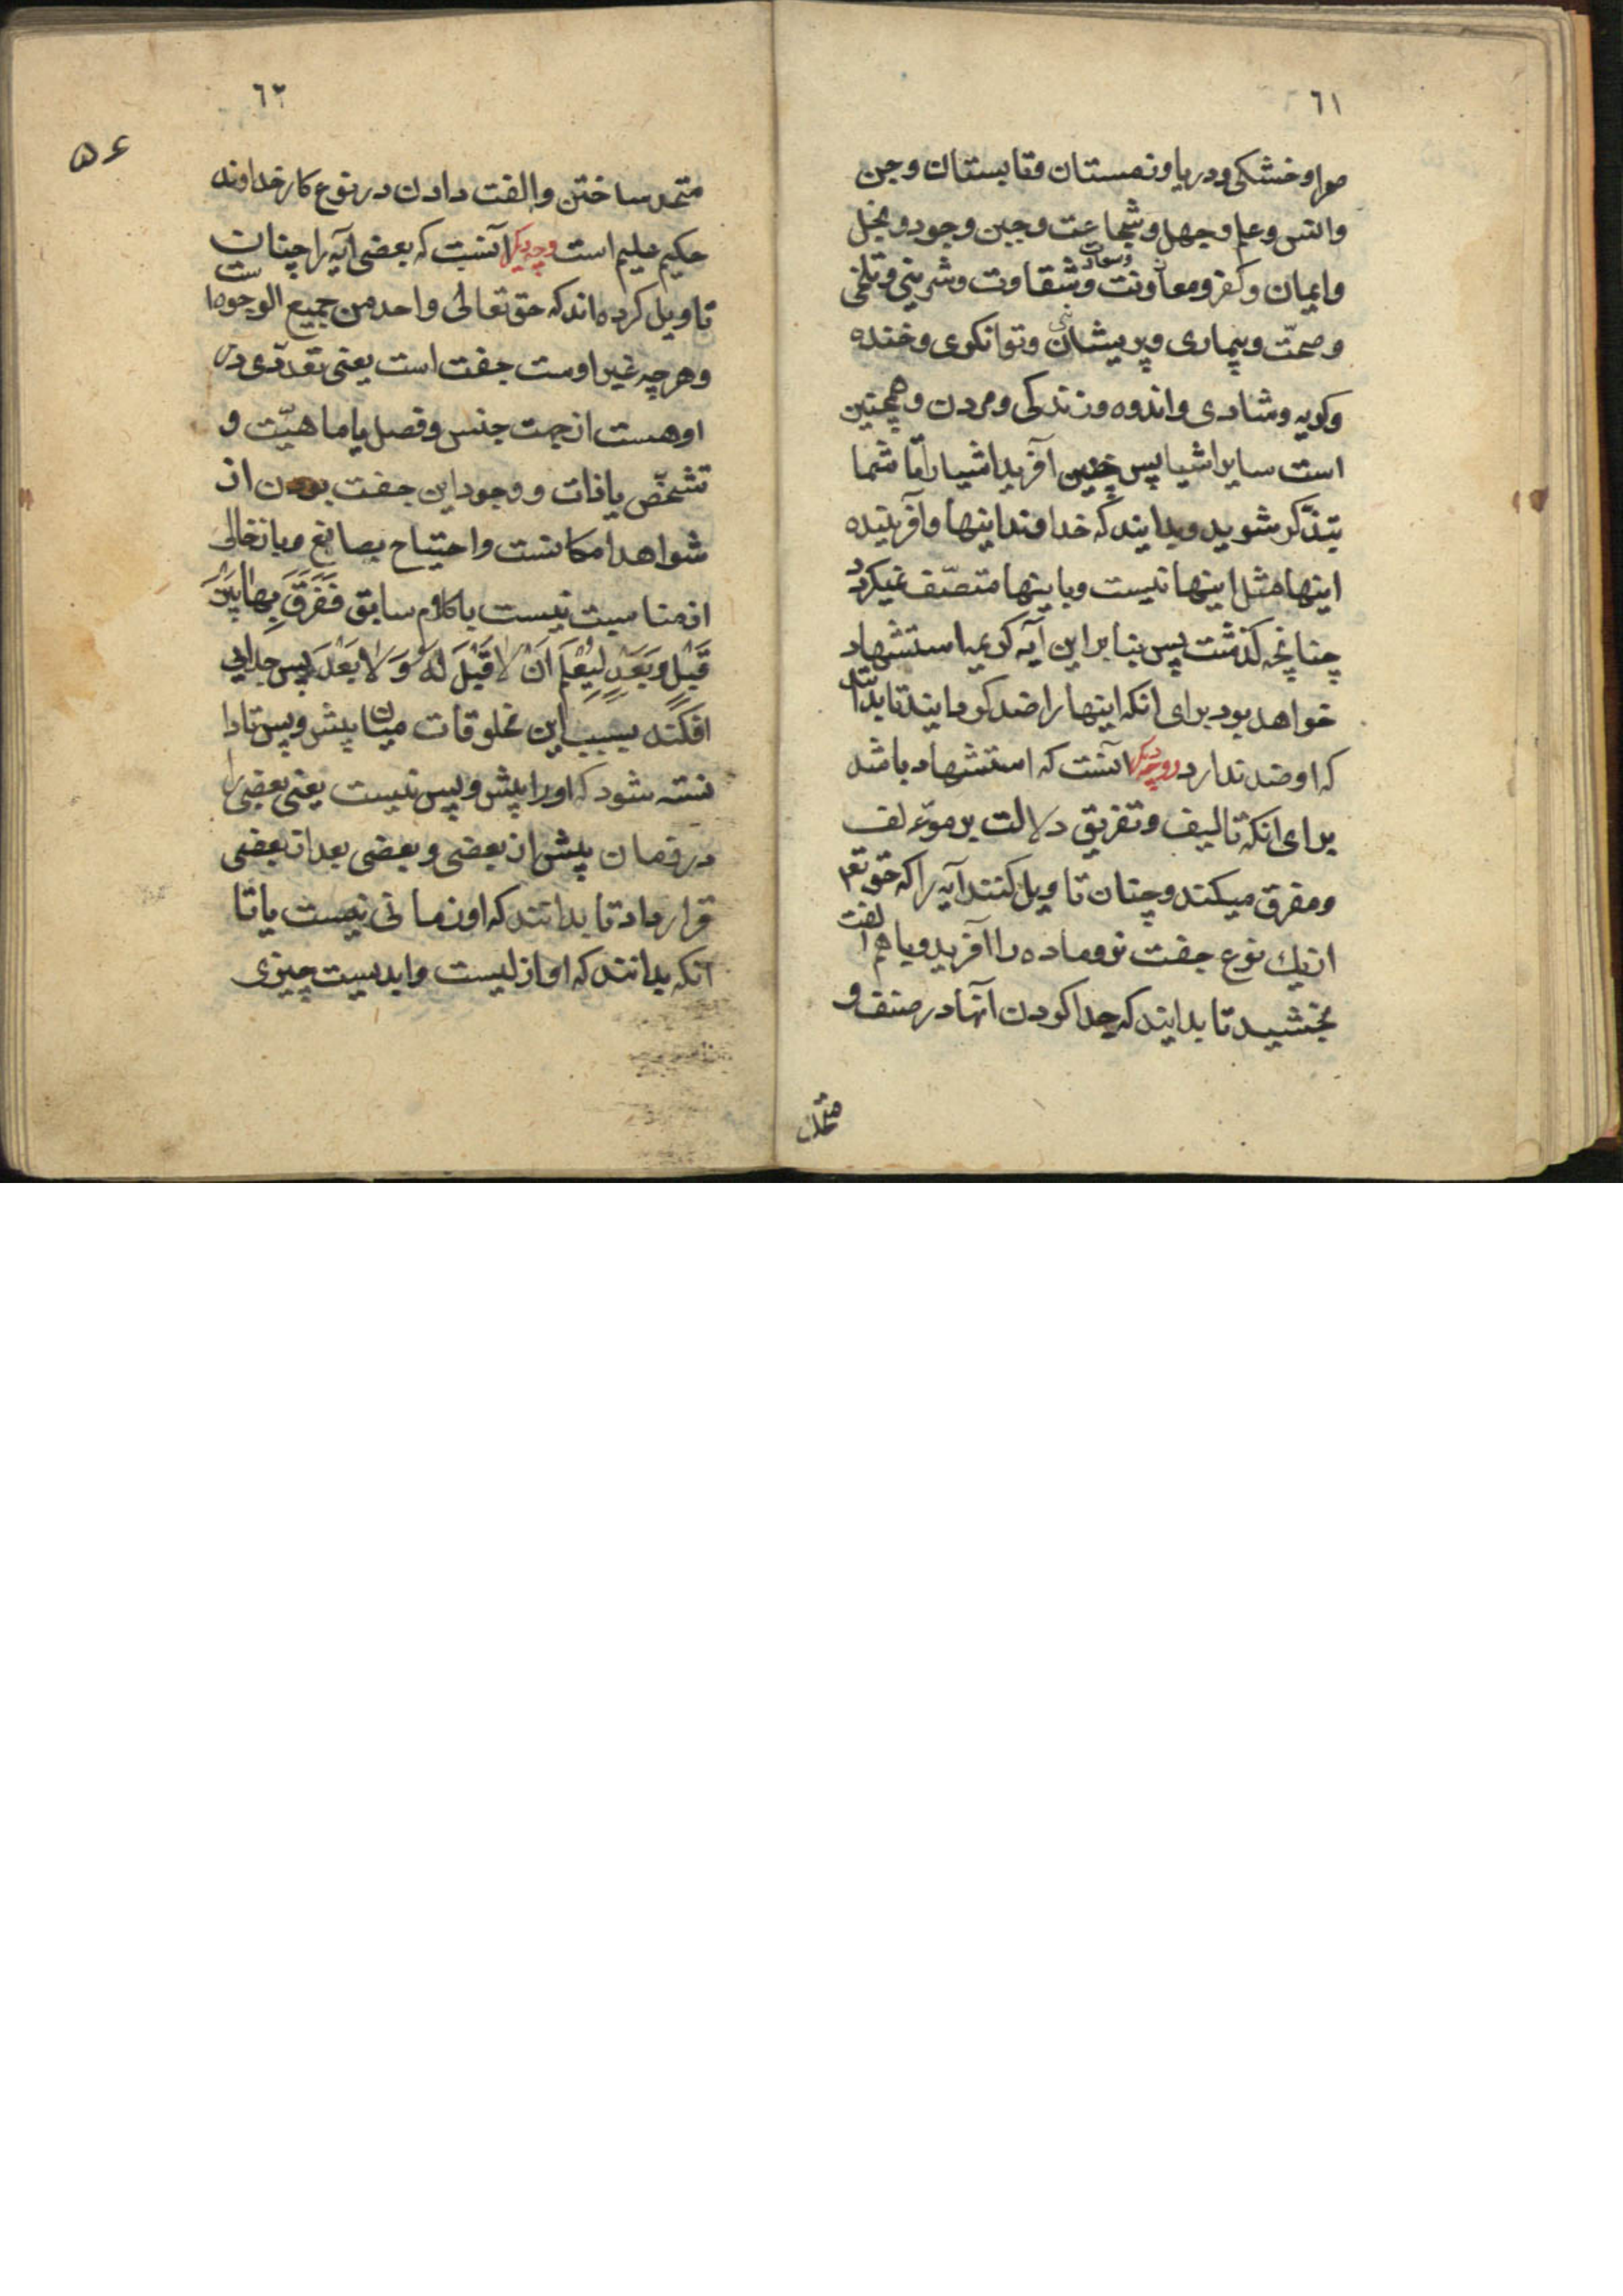 ٦١
هوا و خشکی و دریا و زمستان و تابستان و جن
وانس و علم و جهل و شجاعت و جبن و جود و بخل
وایمان و کفر و معاونت و سعادت و شقاوت و شرینی و تلخی
و صحّت و بیماری و پریشانی و توانکری و خنده
و کریه و شادی و اندوه و زندکی و مردن و همچنین
است سایر اشیا پس چنین آفرید اشیا را تا شما
متذکّر شوید و بدانید که خداوند اینها و آفریننده
اینها مثل اینها نیست و باینها متصّف نمیکردد
چنانچه کذشت پس بنا براین آیه کریمه استشهاد
خواهد بود برای انکه اینها را ضد کردانید تا بدانند
که او ضد ندارد و وجه دیکر آنست که استشهاد باشد
برای انکه تالیف و تفریق دلالت بر موءلف
و مفرق میکند و چنان تاویل کنند آیه را که حق تعم
از یك نوع جفت نر و ماده را آفرید و باهم الفت
بخشید تا بدانید که جدا کردن آنها در صنف و
متحد
٦٢
۵۶
متحد ساختن و الفت دادن در نوع کار خداوند
حکیم علیم است وجه دیکر آنست که بعضی آیه را چنان
تاویل کرده اند که حق تعالی واحد من جمیع الوجوه است
و هر چه غیر اوست جفت است یعنی تعدّدی در
او هست از جهت جنس و فصل یا ماهیّت و
تشخّص یا ذات و وجود این جفت بودن از
شواهد امکانست و احتیاج بصانع و باز خالی
از مناسبت نیست با کلام سابق فَفَرَّقَ بِهٰا بَیْنَ
قَبْلٍ وَ بَعْدٍ لِیُعْلَمَ اَنْ لاٰ قَبْلَ لَهُ وَ لاٰ بَعْدَ پس جدایی
افکند بسبب این مخلوقات میان پیش و پس تا دا
نسته شود که او را پیش و پس نیست یعنی بعضی را
در زمان پیش از بعضی و بعضی بعد از بعضی
قرار داد تا بدانند که او زمانی نیست یا تا
آنکه بدانند که او ازلیست و ابدیست چیزی